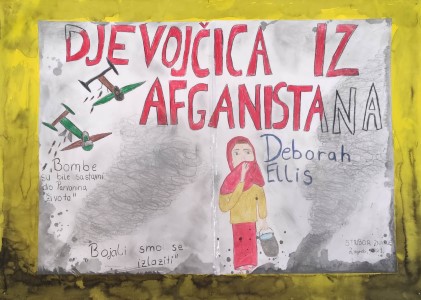 DJEVOJČICA IZ
AFGANISTANA
Deborah
Ellis
"Bombe
su bile sastavni
života"
"Bojali smo se
izlaziti"